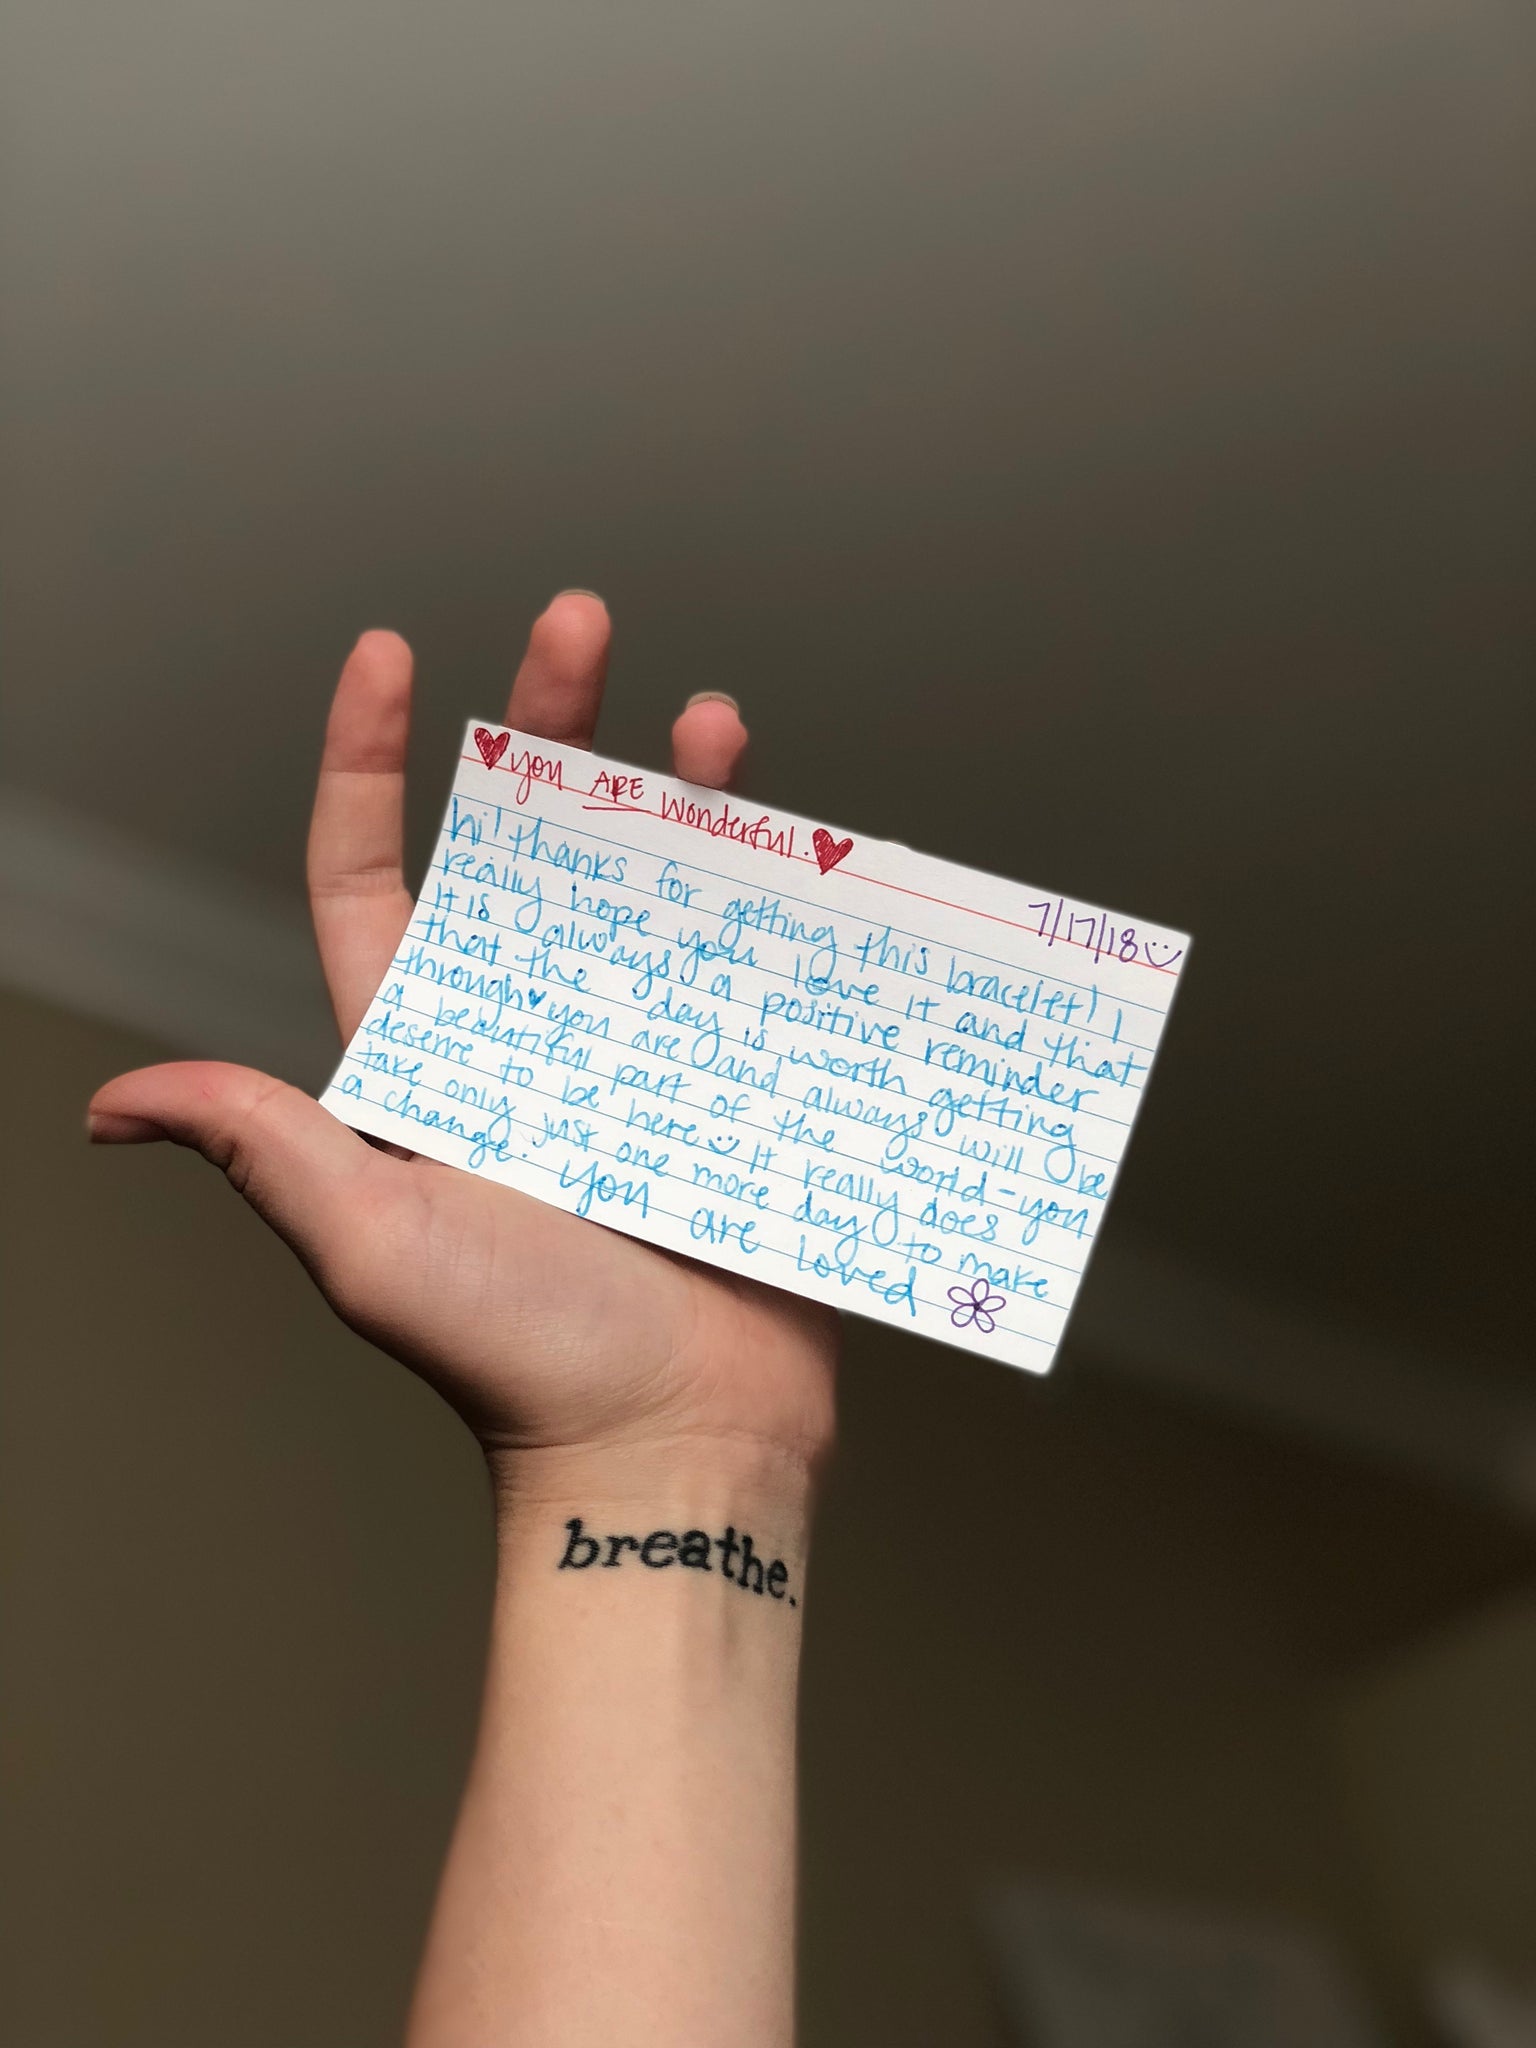 you ARE wonderful.
7/17/18
hi! thanks for getting this bracelet! I
really hope you love it and that
it is always a positive reminder
that the day is worth getting
through you are and always will be
a beautiful part of the world-you
deserve to be here It really does
take only just one more day to make
a change. you are loved
breathe.